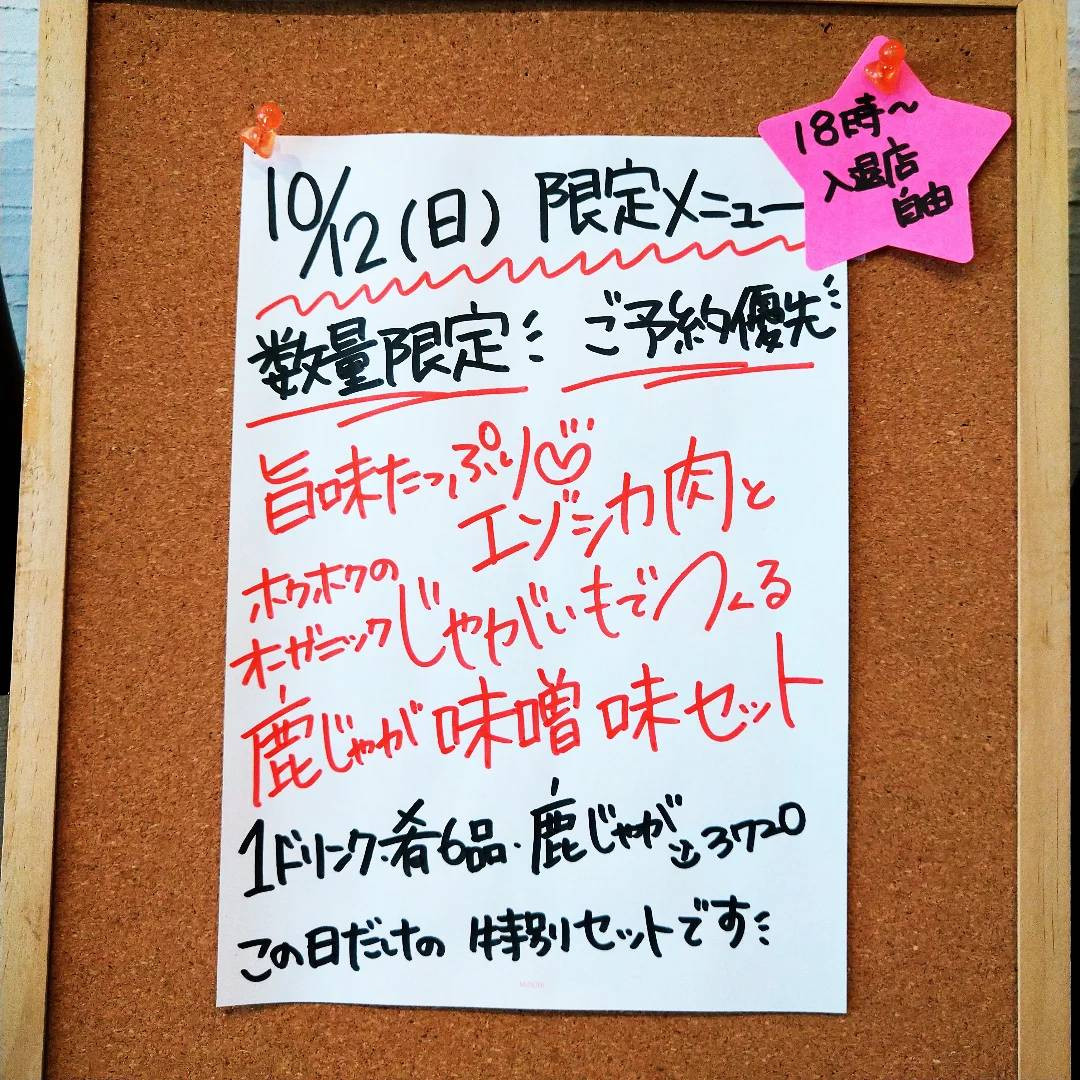 10/12(日) 限定メニュー
18時～
入退店
自由
数量限定 ご予約優先
旨味たっぷり♡
エゾシカ肉と
ホクホクの
オーガニックじゃがいもでつくる
鹿じゃが味噌味セット
1ドリンク・肴6品・鹿じゃが 3720
この日だけの特別セットです